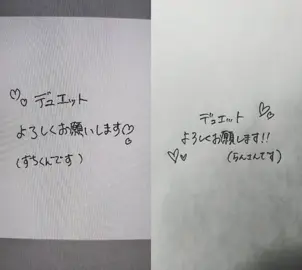 デュエット
よろしくお願いします
(ずちくんです)
デュエット
よろしくお願します!!
(らんさんです)